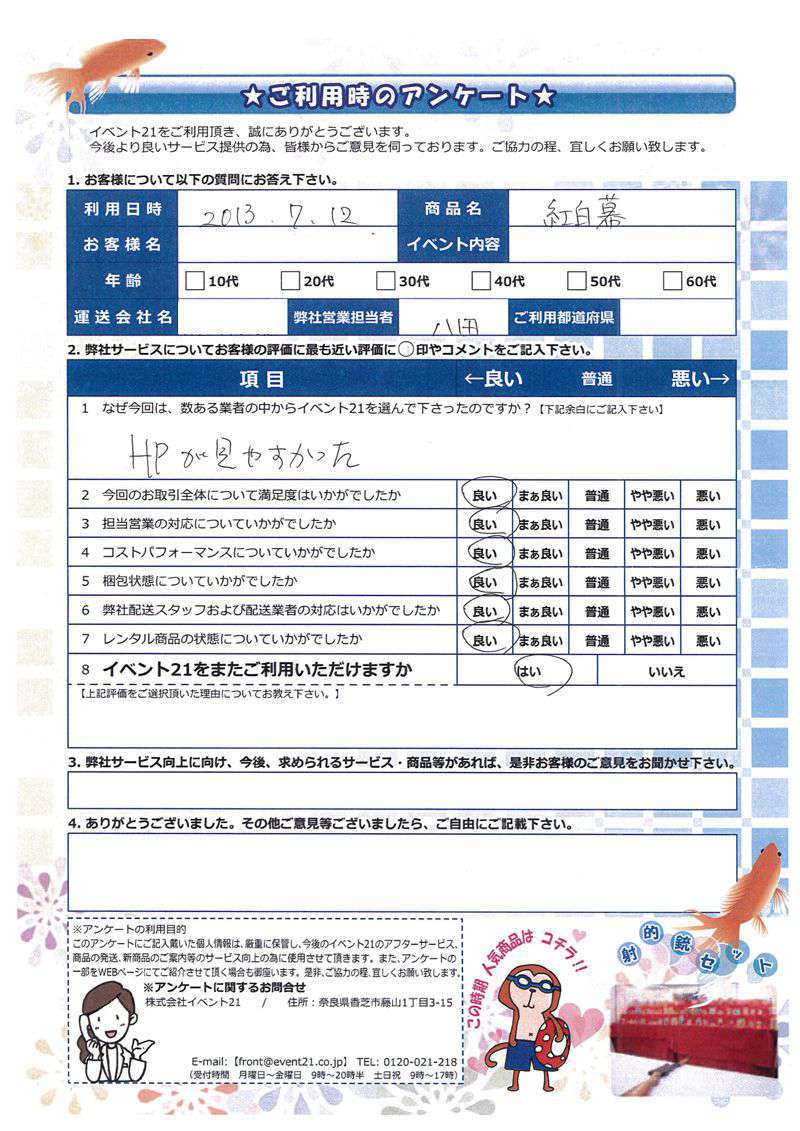 ★ご利用時のアンケート★
イベント21をご利用頂き、誠にありがとうございます。
今後より良いサービス提供の為、皆様からご意見を伺っております。ご協力の程、宜しくお願い致します。
1. お客様について以下の質問にお答え下さい。
利用日時 2013.7.12 商品名 紅白幕
お客様名 イベント内容
年齢 10代 20代 30代 40代 50代 60代
運送会社名 弊社営業担当者 八田 ご利用都道府県
2. 弊社サービスについてお客様の評価に最も近い評価に〇印やコメントをご記入下さい。
項目 ←良い 普通 悪い→
1 なぜ今回は、数ある業者の中からイベント21を選んで下さったのですか?【下記余白にご記入下さい】
HPが見やすかった
2 今回のお取引全体について満足度はいかがでしたか 良い まぁ良い 普通 やや悪い 悪い
3 担当営業の対応についていかがでしたか 良い まぁ良い 普通 やや悪い 悪い
4 コストパフォーマンスについていかがでしたか 良い まぁ良い 普通 やや悪い 悪い
5 梱包状態についていかがでしたか 良い まぁ良い 普通 やや悪い 悪い
6 弊社配送スタッフおよび配送業者の対応はいかがでしたか 良い まぁ良い 普通 やや悪い 悪い
7 レンタル商品の状態についていかがでしたか 良い まぁ良い 普通 やや悪い 悪い
8 イベント21をまたご利用いただけますか はい いいえ
【上記評価をご選択頂いた理由についてお教え下さい。】
3. 弊社サービス向上に向け、今後、求められるサービス・商品等があれば、是非お客様のご意見をお聞かせ下さい。
4. ありがとうございました。その他ご意見等ございましたら、ご自由にご記載下さい。
※アンケートの利用目的
このアンケートにご記入戴いた個人情報は、厳重に保管し、今後のイベント21のアフターサービス、
商品の発送、新商品のご案内等のサービス向上の為に使用させて頂きます。また、アンケートの
一部をWEBページにてご紹介させて頂く場合も御座います。是非、ご協力の程、宜しくお願い致します。
※アンケートに関するお問合せ
株式会社イベント21 / 住所:奈良県香芝市藤山1丁目3-15
E-mail:【front@event21.co.jp】 TEL: 0120-021-218
(受付時間 月曜日~金曜日 9時~20時半 土日祝 9時~17時)
この時期 人気商品は コチラ!!
射的銃セット